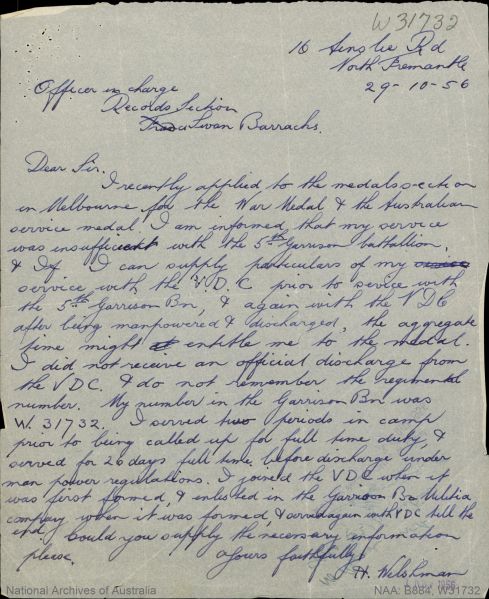 W31732
16 Ainslie Rd
North Fremantle
29-10-56
Officer in charge
Records Section
Swan Barrachs.
Dear Sir.
I recently applied to the medals section
in Melbourne for the War Medal & the Australian
service medal. I am informed that my service
was insufficent with the 5th Garrison battallion,
& If I can supply particulars of my
service with the V.D.C prior to service with
the 5th Garrison Bn, & again with the VDC
after being manpowered & discharged, the aggregate
time might entitle me to the medal.
I did not receive an official discharge from
the VDC. & do not remember the regimental
number. My number in the Garrison Bn was
W. 31732. I served two periods in camp
prior to being called up for full time duty, &
served for 26 days full time, before discharge under
man power regulations. I joined the VDC when it
was first formed, & enlisted in the Garrison Bn Militia
company when it was formed, & served again with VDC till the
end. Could you supply the necessary information
please.
Yours faithfully
H. Welshman
National Archives of Australia
NAA: B884, W31732